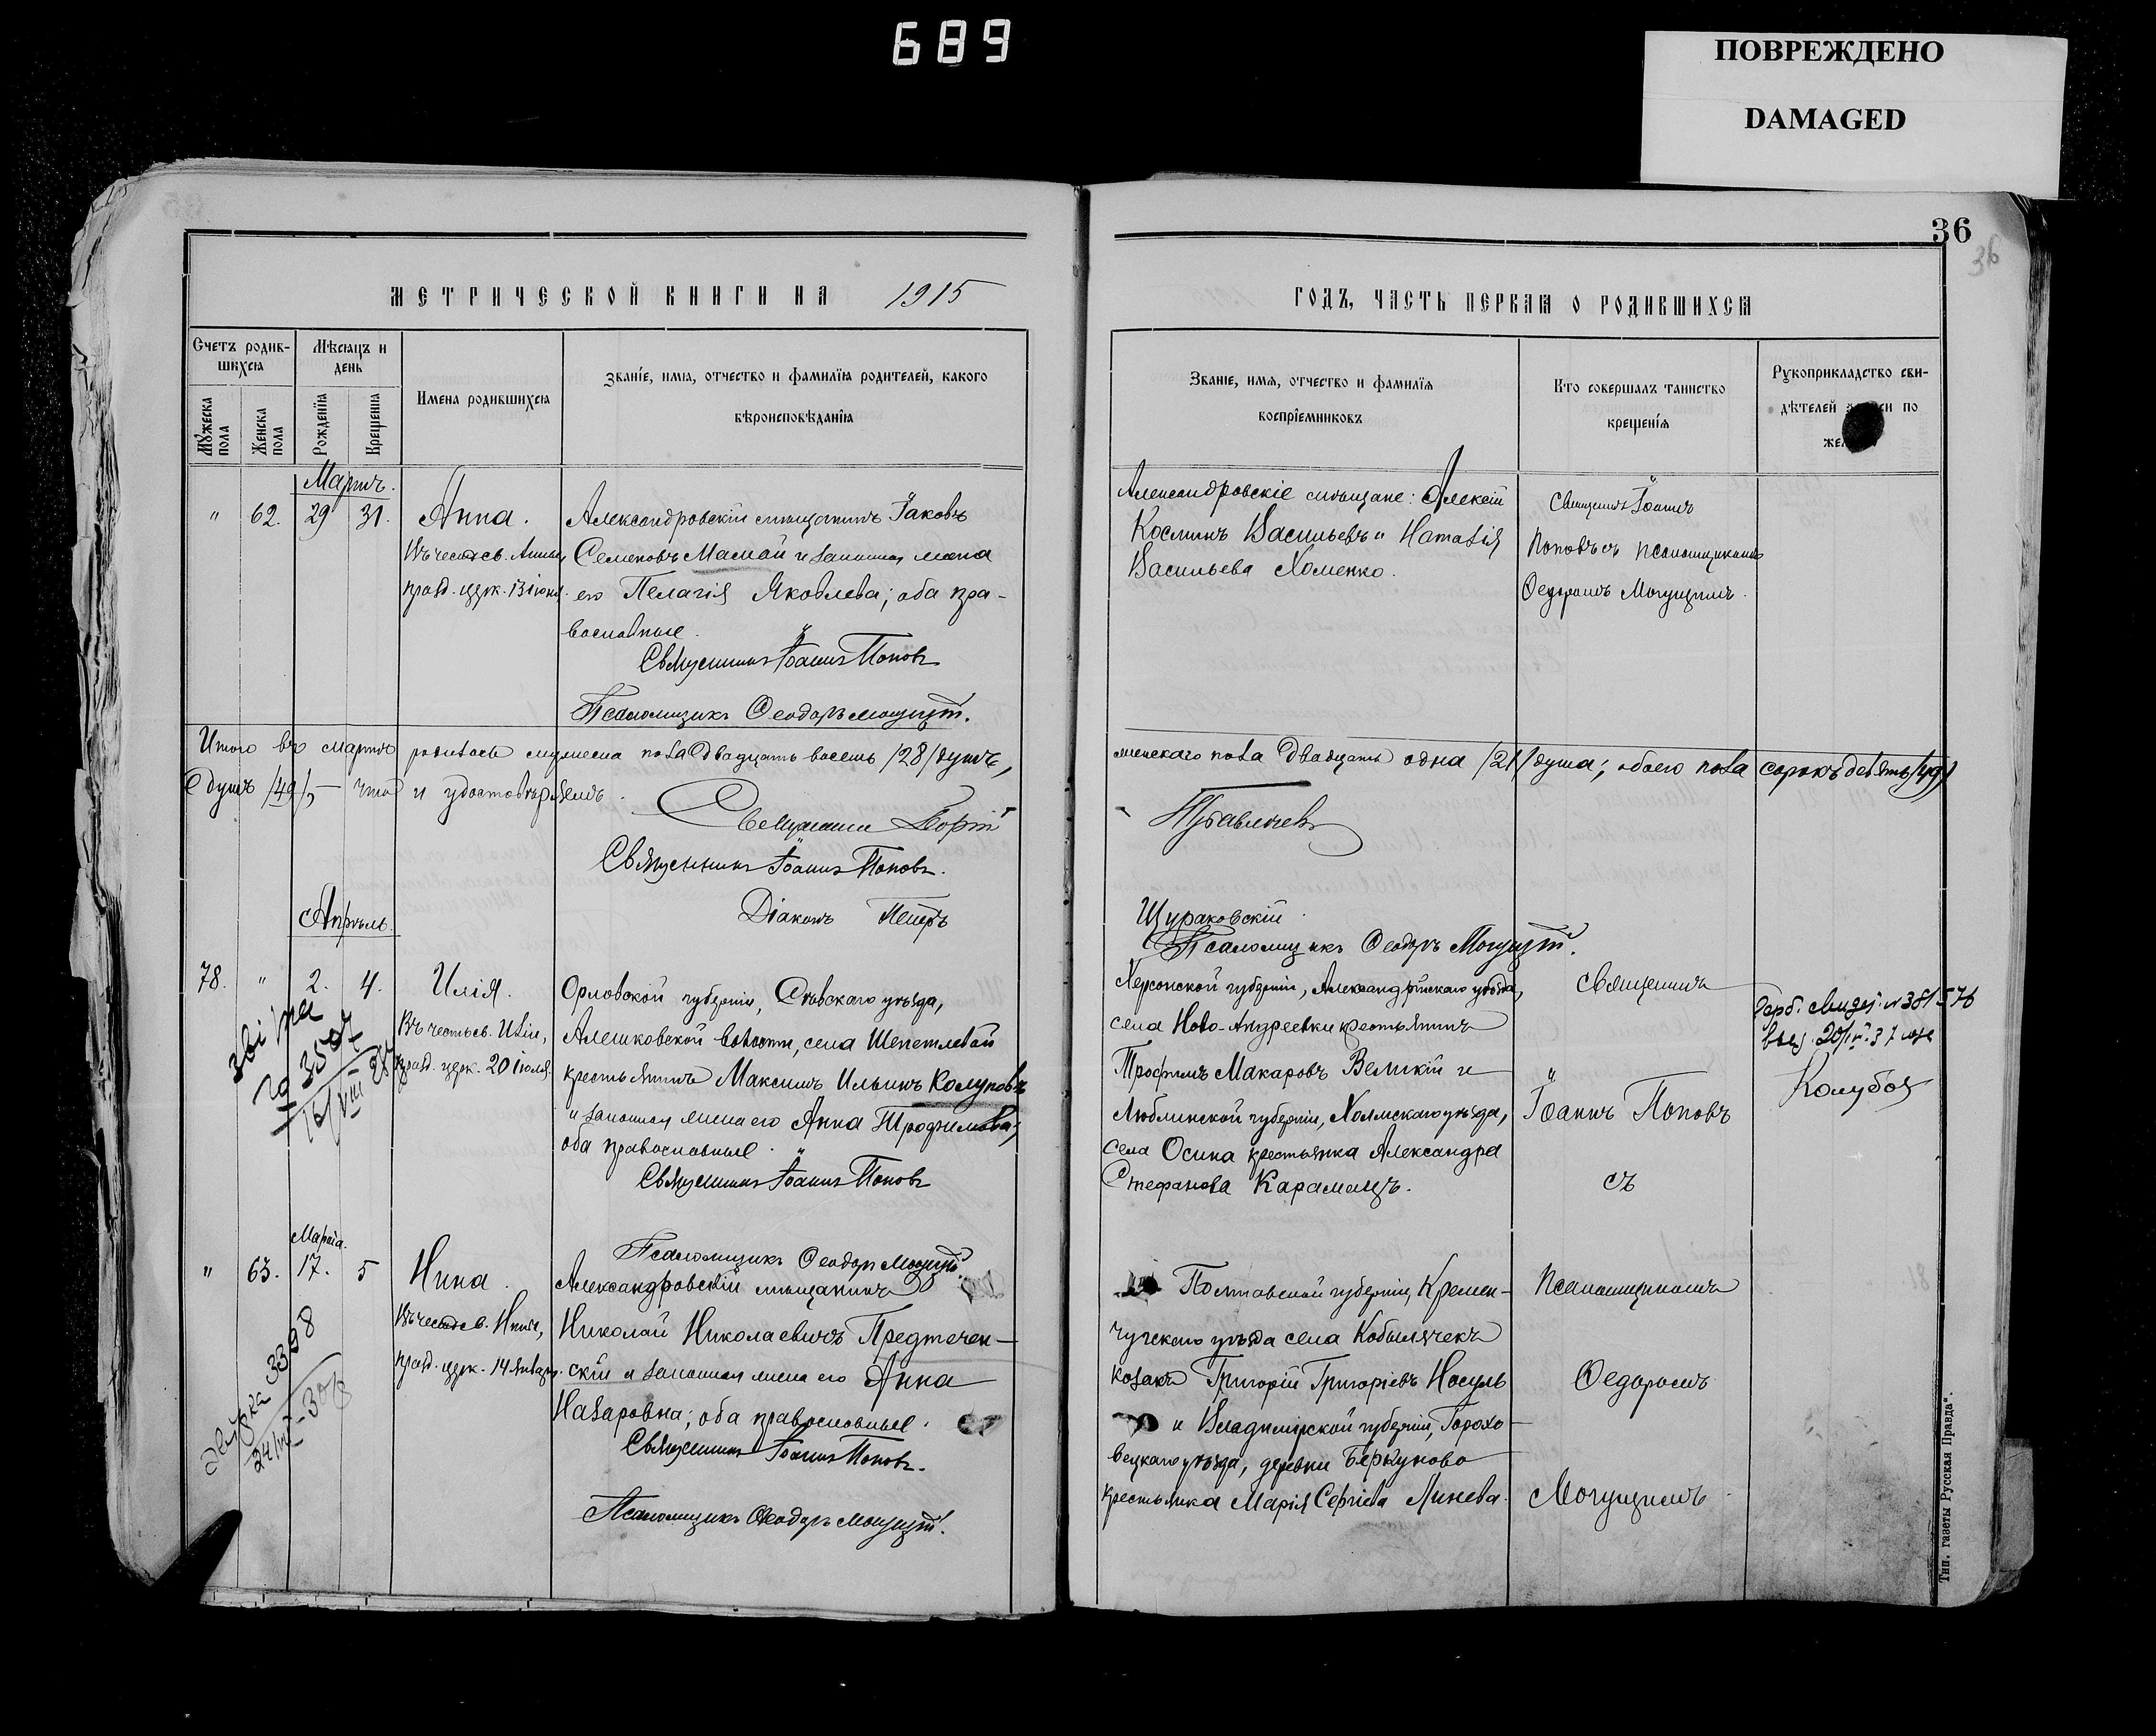 689
ПОВРЕЖДЕНО
DAMAGED
36
36
МЕТРИЧЕСКОЙ КНИГИ НА 1915
ГОДЪ, ЧАСТЬ ПЕРВАЯ О РОДИВШИХСЯ
Счетъ родив-
шихся
Мѣсяцъ и
день
Мужеска
пола
Женска
пола
Рожденїя
Крещенїя
Имена родившихся
Званїе, имя, отчество и фамилїя родителей, какого
вѣроисповѣданїя
Званїе, имя, отчество и фамилїя
воспрїемниковъ
Кто совершалъ таинство
крещенїя
Рукоприкладство сви-
дѣтелей по
Мартъ.
" 62. 29 31. Анна.
Въ честь св. Анны,
празд. церк. 13 іюня.
Александровскій мѣщанинъ Іаковъ
Семеновъ Мамай и законная жена
его Пелагія Яковлева; оба пра-
вославные.
Священникъ Іоаннъ Поповъ
Псаломщикъ Ѳеодоръ Могущій.
Александровскіе мѣщане: Алексій
Косминъ Васильевъ и Наталія
Васильева Хоменко.
Священникъ Іоаннъ
Поповъ съ псаломщикомъ
Ѳедоромъ Могущимъ.
Итого въ мартѣ родилось мужеска пола двадцать восемь /28/ душъ,
женскаго пола двадцать одна /21/ душа; обоего пола сорокъ девять /49/
душъ /49/, — что и удостовѣряемъ.
Священникъ
Священникъ Іоаннъ Поповъ.
Діаконъ Петръ
Щураковскій.
Псаломщикъ Ѳеодоръ Могущій.
Апрѣль.
78. " 2. 4. Илія.
Въ честь св. Иліи,
празд. церк. 20 іюля.
Орловской губерніи, Сѣвскаго уѣзда,
Алешковской волости, села Шепетлевой
крестьянинъ Максимъ Ильинъ Колуповъ
и законная жена его Анна Трофимова;
оба православные.
Священникъ Іоаннъ Поповъ
Псаломщикъ Ѳеодоръ Могущій.
Херсонской губерніи, Александрійскаго уѣзда,
села Ново-Андреевки крестьянинъ
Трофимъ Макаровъ Великій и
Люблинской губерніи, Холмскаго уѣзда,
села Осина крестьянка Александра
Стефанова Карамацъ.
Священникъ
Іоаннъ Поповъ
съ
Марта.
" 63. 17. 5 Нина.
Въ честь св. Нины,
празд. церк. 14 января.
3398
Александровскій мѣщанинъ
Николай Николаевичъ Предтечен-
скій и законная жена его Анна
Назаровна; оба православные.
Священникъ Іоаннъ Поповъ.
Псаломщикъ Ѳеодоръ Могущій.
Полтавской губерніи, Кремен-
чугскаго уѣзда села Кобылячекъ
козакъ Григорій Григоріевъ Носуль
и Владимірской губерніи, Горохо-
вецкаго уѣзда, деревни
крестьянка Марія Сергіева Линева.
Псаломщикомъ
Ѳедоромъ
Могущимъ
Тип. газеты Русская Правда".